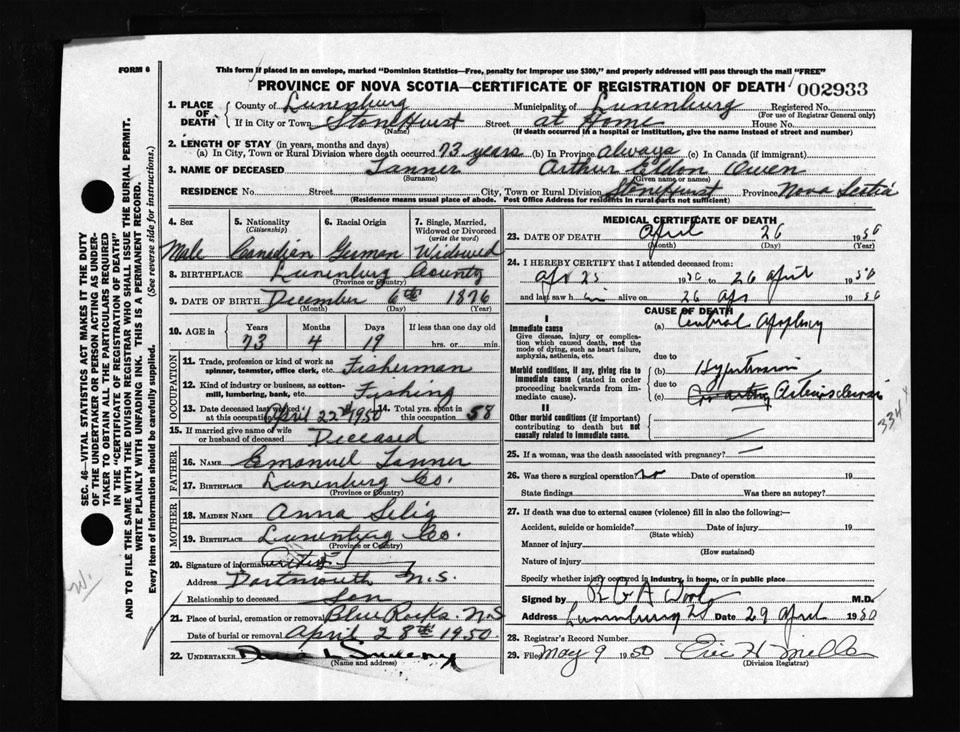 FORM 6
This form if placed in an envelope, marked "Dominion Statistics—Free, penalty for improper use $300," and properly addressed will pass through the mail "FREE"
PROVINCE OF NOVA SCOTIA—CERTIFICATE OF REGISTRATION OF DEATH 002933
1. PLACE OF DEATH County of Lunenburg Municipality of Lunenburg Registered No.
(For use of Registrar General only)
If in City or Town Stonehurst Street at Home House No.
(Name) (If death occurred in a hospital or institution, give the name instead of street and number)
2. LENGTH OF STAY (in years, months and days)
(a) In City, Town or Rural Division where death occurred 73 years (b) In Province Always (c) In Canada (if immigrant)
3. NAME OF DECEASED Tanner Arthur Eldon Owen
(Surname) (Given name or names)
RESIDENCE No. Street City, Town or Rural Division Stonehurst Province Nova Scotia
(Residence means usual place of abode. Post Office Address for residents in rural parts not sufficient)
4. Sex 5. Nationality (Citizenship) 6. Racial Origin 7. Single, Married, Widowed or Divorced (write the word)
Male Canadian German Widowed
8. BIRTHPLACE Lunenburg County
(Province or Country)
9. DATE OF BIRTH December 6th 1876
(Month) (Day) (Year)
10. AGE in Years Months Days If less than one day old
73 4 19 hrs. or min.
OCCUPATION
11. Trade, profession or kind of work as spinner, teamster, office clerk, etc. Fisherman
12. Kind of industry or business, as cotton-mill, lumbering, bank, etc. Fishing
13. Date deceased last worked at this occupation April 22nd 1950 14. Total yrs. spent in this occupation 58
15. If married give name of wife or husband of deceased Deceased
FATHER
16. NAME Emanuel Tanner
17. BIRTHPLACE Lunenburg Co.
(Province or Country)
MOTHER
18. MAIDEN NAME Anna Selig
19. BIRTHPLACE Lunenburg Co.
(Province or Country)
20. Signature of informant
Address Dartmouth N.S.
Relationship to deceased Son
21. Place of burial, cremation or removal Blue Rocks. N.S
Date of burial or removal April 28th 1950.
22. UNDERTAKER Sweeny
(Name and address)
MEDICAL CERTIFICATE OF DEATH
23. DATE OF DEATH April 26 1950
(Month) (Day) (Year)
24. I HEREBY CERTIFY that I attended deceased from:
Apr 25 1950 to 26 April 1950
and last saw him alive on 26 Apr 1950
CAUSE OF DEATH
I
Immediate cause
Give disease, injury or complication which caused death, not the mode of dying, such as heart failure, asphyxia, asthenia, etc.
(a) Cerebral Apoplexy
due to
Morbid conditions, if any, giving rise to immediate cause (stated in order proceeding backwards from immediate cause).
(b) Hypertension
due to
(c) Arteriosclerosis
334
II
Other morbid conditions (if important) contributing to death but not causally related to immediate cause.
25. If a woman, was the death associated with pregnancy?
26. Was there a surgical operation? no Date of operation 19
State findings Was there an autopsy?
27. If death was due to external causes (violence) fill in also the following:—
Accident, suicide or homicide? Date of injury 19
(State which)
Manner of injury
(How sustained)
Nature of injury
Specify whether injury occurred in industry, in home, or in public place
Signed by R G A Wood M.D.
Address Lunenburg NS Date 29 April 1950
28. Registrar's Record Number
29. Filed May 9 1950
(Division Registrar)
SEC. 46—VITAL STATISTICS ACT MAKES IT THE DUTY
OF THE UNDERTAKER OR PERSON ACTING AS UNDER-
TAKER TO OBTAIN ALL THE PARTICULARS REQUIRED
IN THE "CERTIFICATE OF REGISTRATION OF DEATH"
AND TO FILE THE SAME WITH THE DIVISION REGISTRAR WHO SHALL ISSUE THE BURIAL PERMIT.
WRITE PLAINLY WITH UNFADING INK—THIS IS A PERMANENT RECORD.
Every item of information should be carefully supplied. (See reverse side for instructions.)